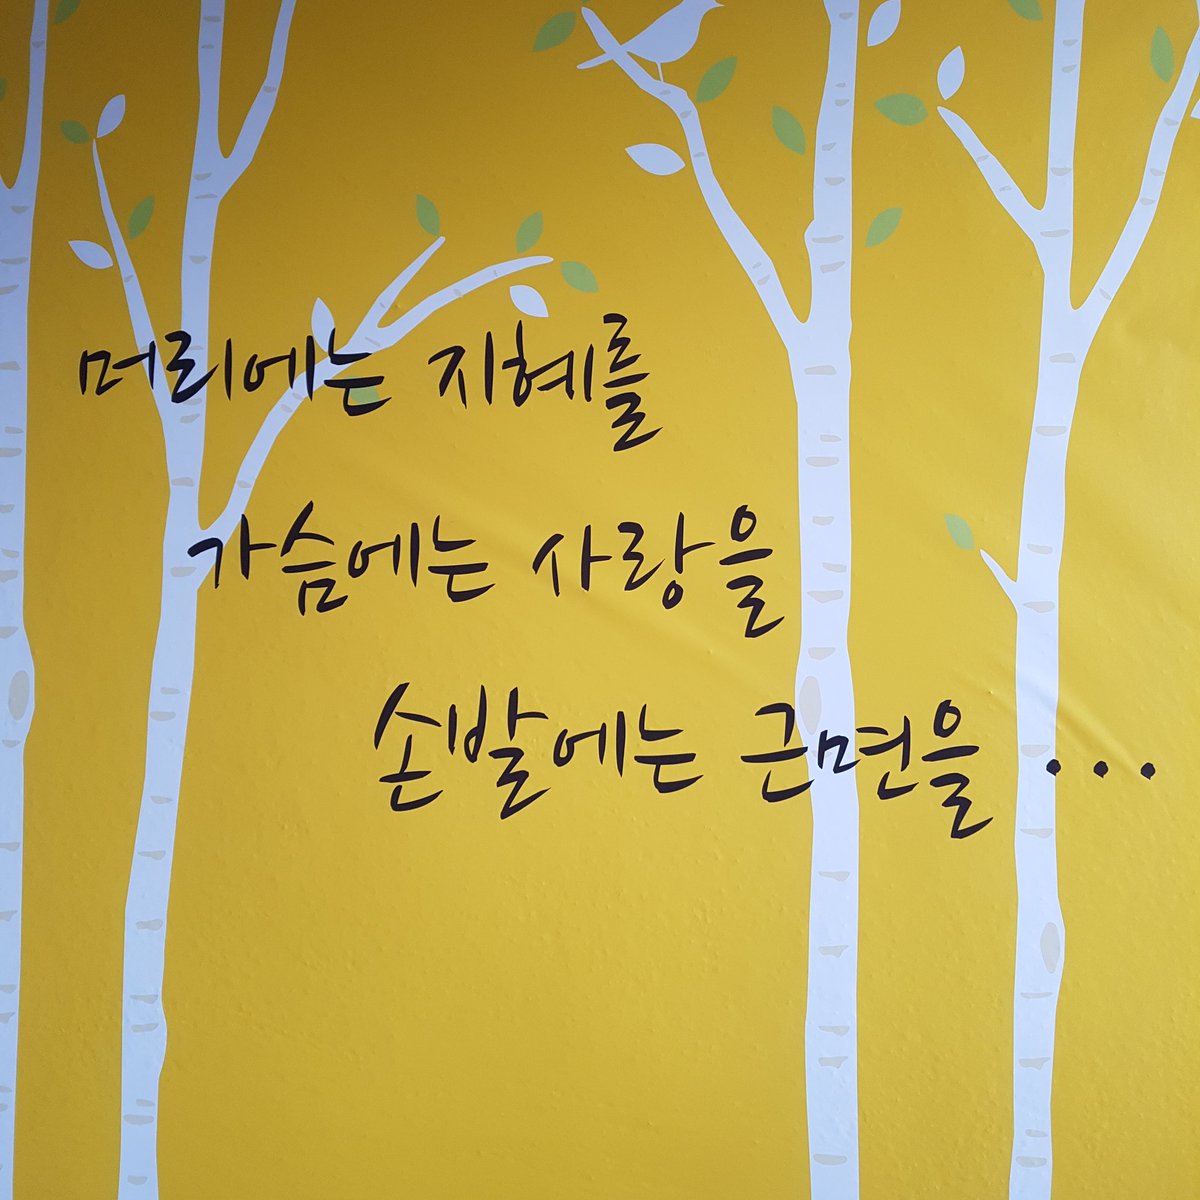 머리에는 지혜를
가슴에는 사랑을
손발에는 근면을 ...